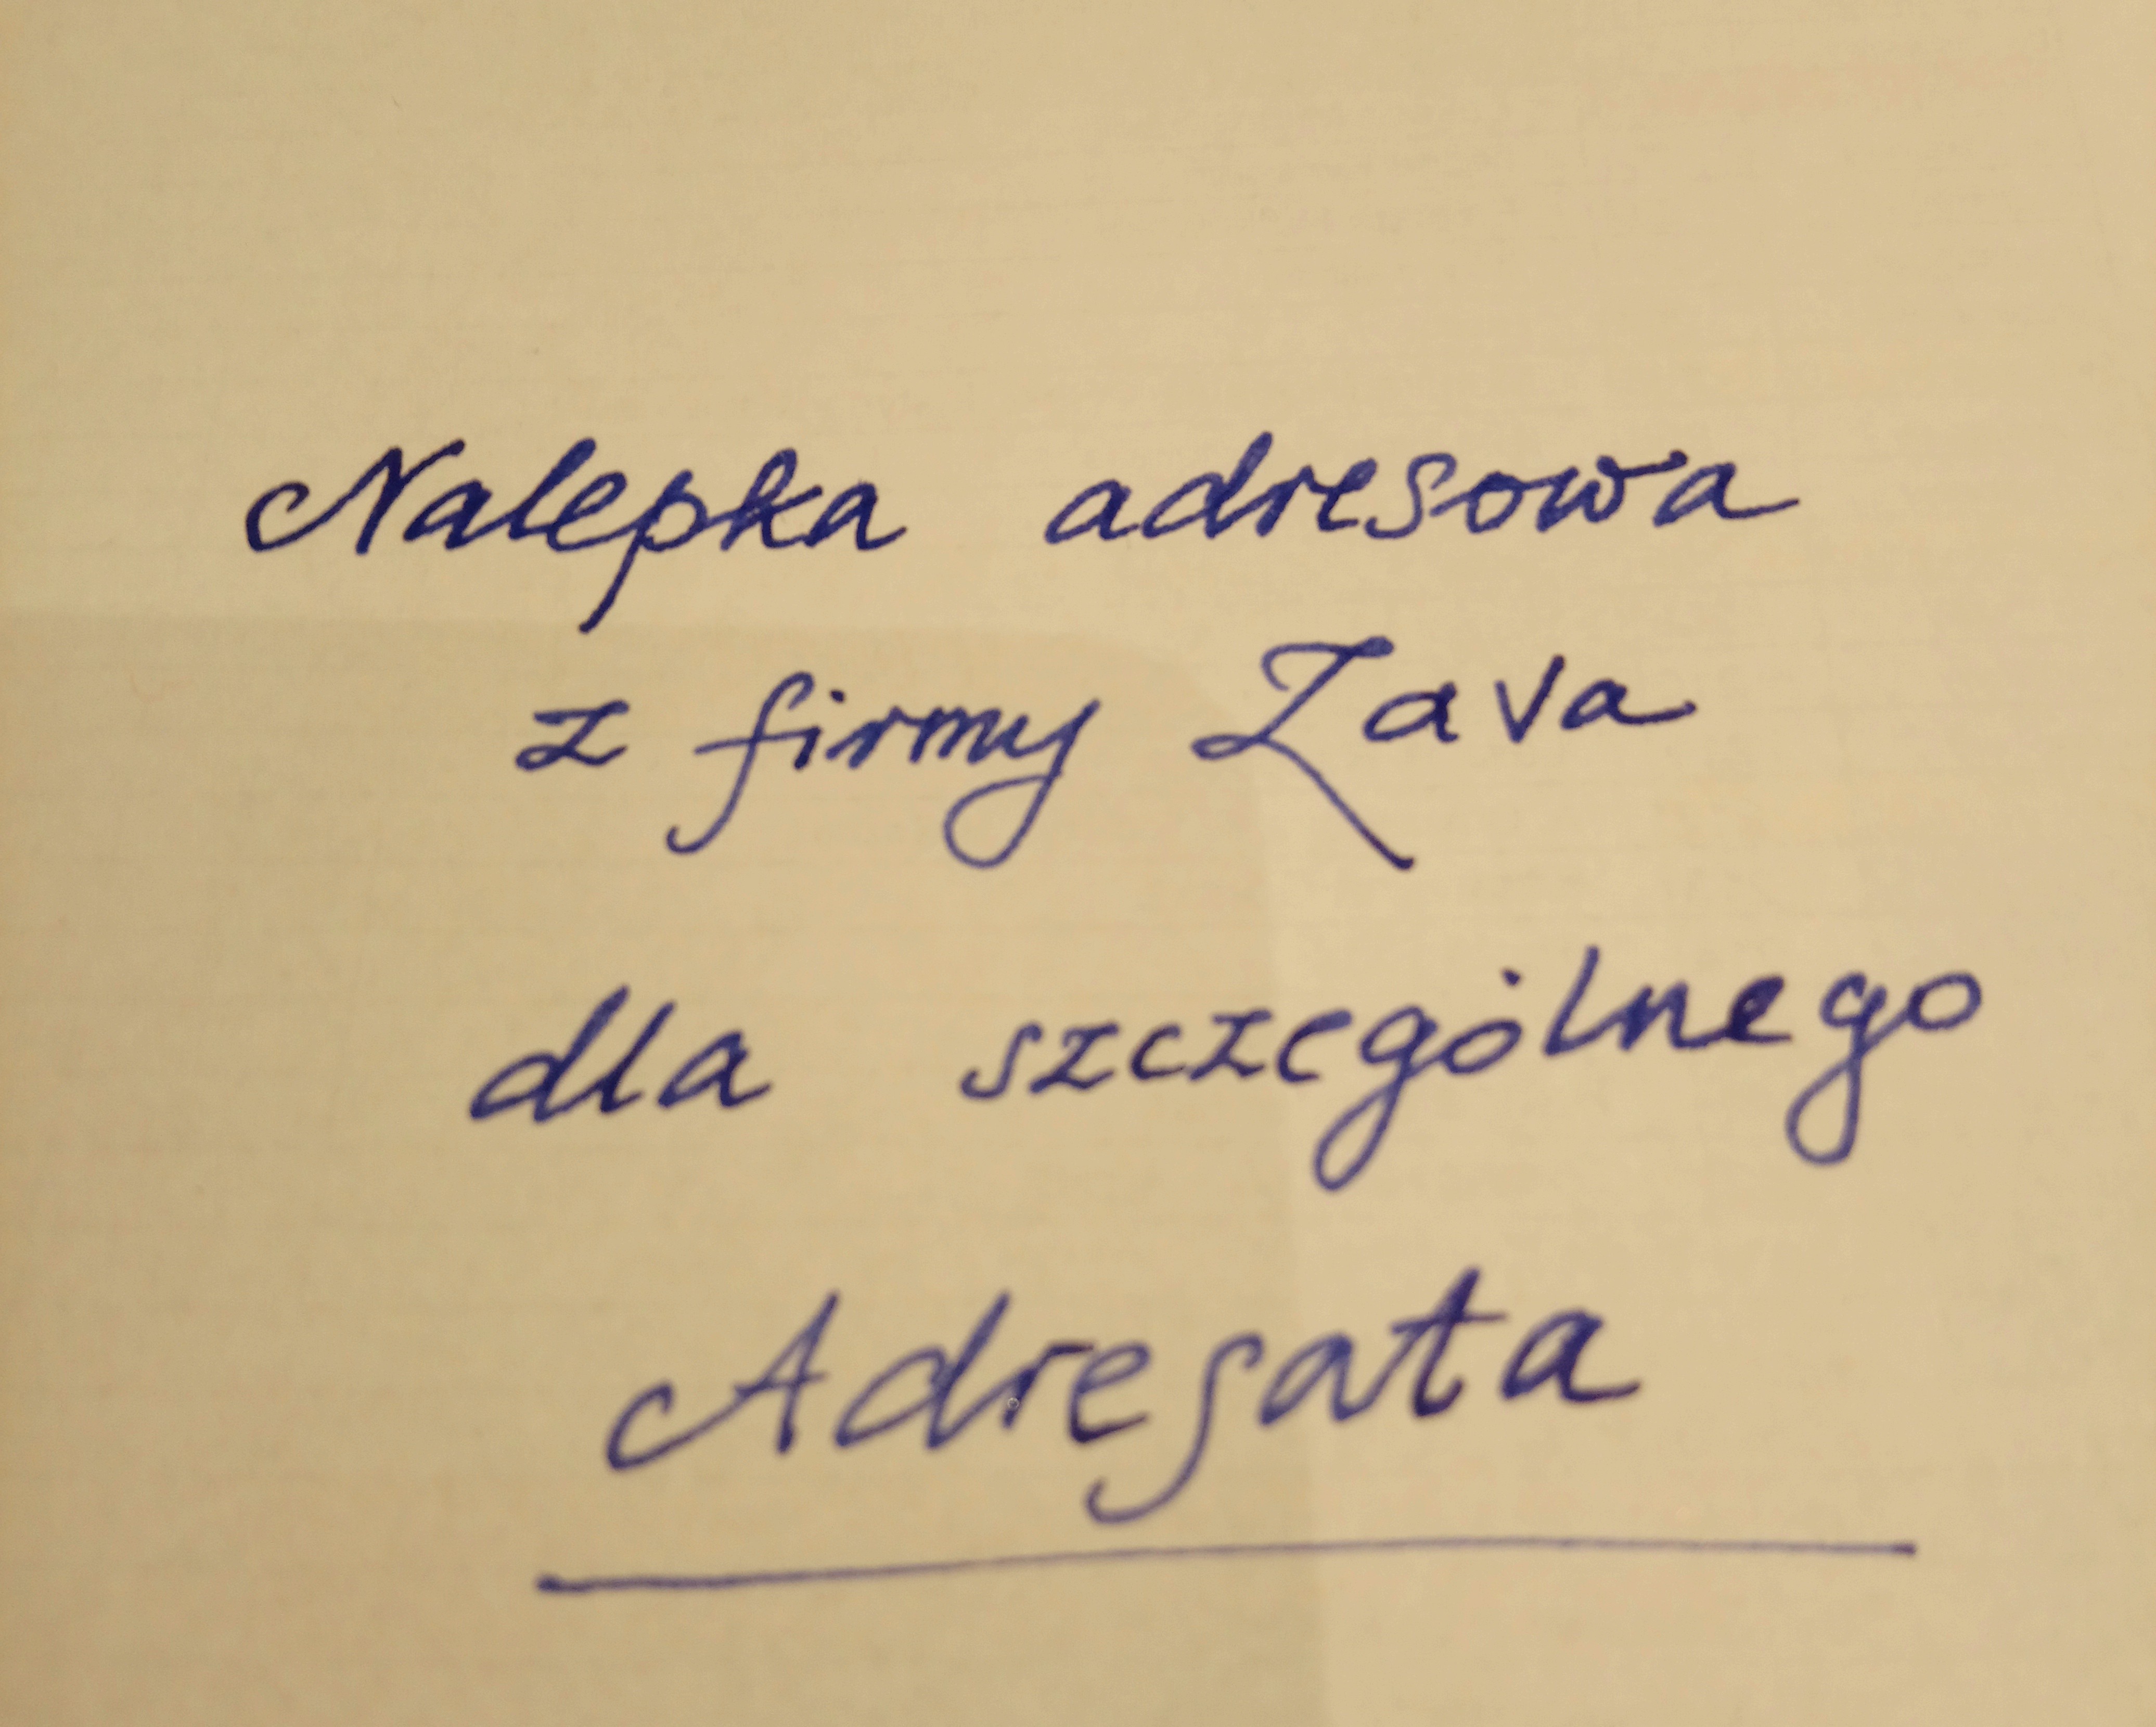 Nalepka adresowa
z firmy Zava
dla szczególnego
Adresata